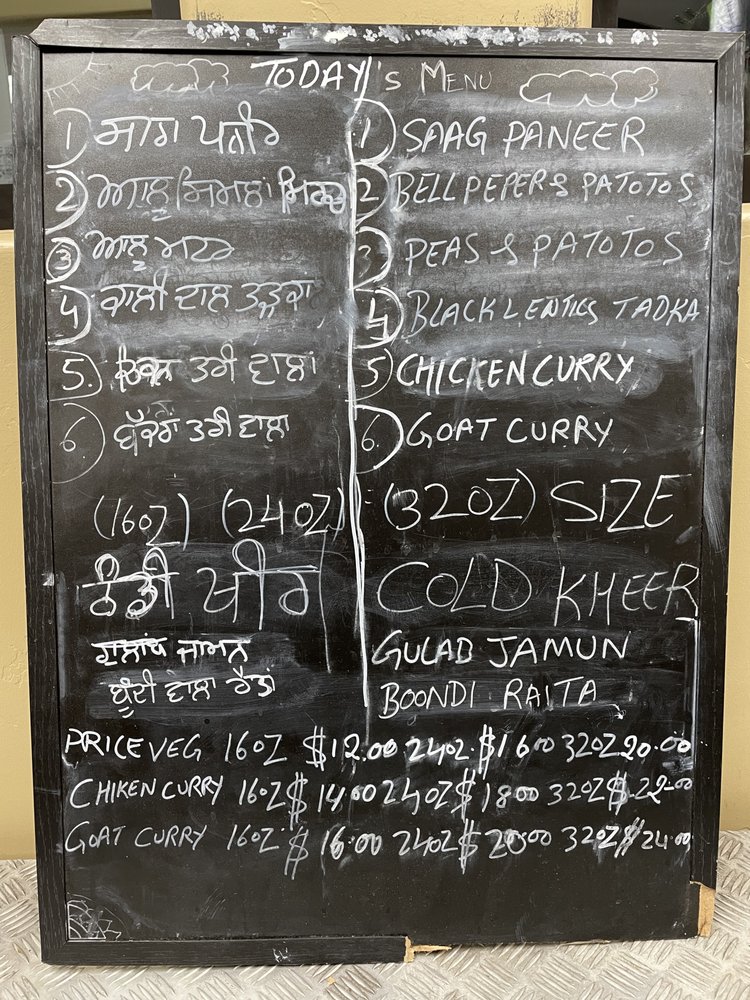 TODAY's MENU
1 ਸਾਗ ਪਨੀਰ 1 SAAG PANEER
2 ਆਲੂ ਸਿਮਲਾ ਮਿਰਚ 2 BELL PEPER & PATOTOS
3 ਆਲੂ ਮਟਰ 3 PEAS & PATOTOS
4 ਕਾਲੀ ਦਾਲ ਤੜਕਾ 4 BLACK LENTICS TADKA
5. ਚਿਕਨ ਤਰੀ ਵਾਲਾ 5 CHICKEN CURRY
6 ਬੱਕਰਾ ਤਰੀ ਵਾਲਾ 6. GOAT CURRY
(16OZ) (24OZ) (32OZ) SIZE
ਠੰਡੀ ਖੀਰ COLD KHEER
ਗੁਲਾਬ ਜਾਮਨ GULAB JAMUN
ਬੂੰਦੀ ਵਾਲਾ ਰੈਤਾ BOONDI RAITA
PRICE VEG 16OZ $12.00 24OZ. $16.00 32OZ 20.00
CHIKEN CURRY 16OZ $14.00 24OZ $18.00 32OZ $22.00
GOAT CURRY 16OZ $16.00 24OZ $20.00 32OZ $24.00